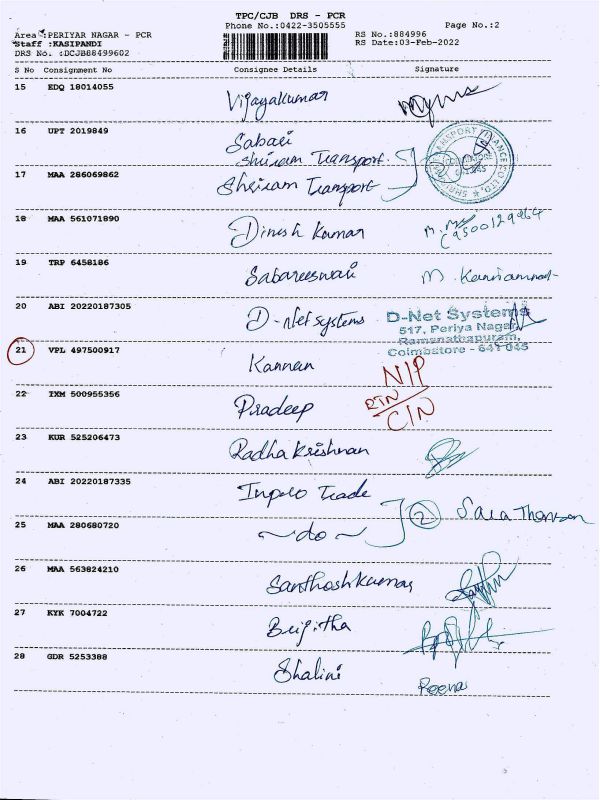 TPC/CJB DRS - PCR
Phone No.:0422-3505555 Page No.:2
Area :PERIYAR NAGAR - PCR RS No.:884996
Staff :KASIPANDI RS Date:03-Feb-2022
DRS No. :DCJB88499602
S No Consignment No Consignee Details Signature
15 EDQ 18014055 Vijayakumar
16 UPT 2019849 Sabari
Shriram Transport
17 MAA 286069862 Shriram Transport
18 MAA 561071890 Dinesh Kumar
19 TRP 6458186 Sabareeswari
20 ABI 20220187305 D-Net systems
D-Net Systems
517, Periya Nagar,
Ramanathapuram,
Coimbatore - 641 045
21 VPL 497500917 Kannan
N/P
RTN
C/N
22 IXM 500955356 Pradeep
23 KUR 525206473 Radha Krishnan
24 ABI 20220187335 Trade
2
25 MAA 280680720 ~do~
26 MAA 563824210 Santhosh Kumar
27 KYK 7004722 Brijitha
28 GDR 5253388 Shalini
Reena